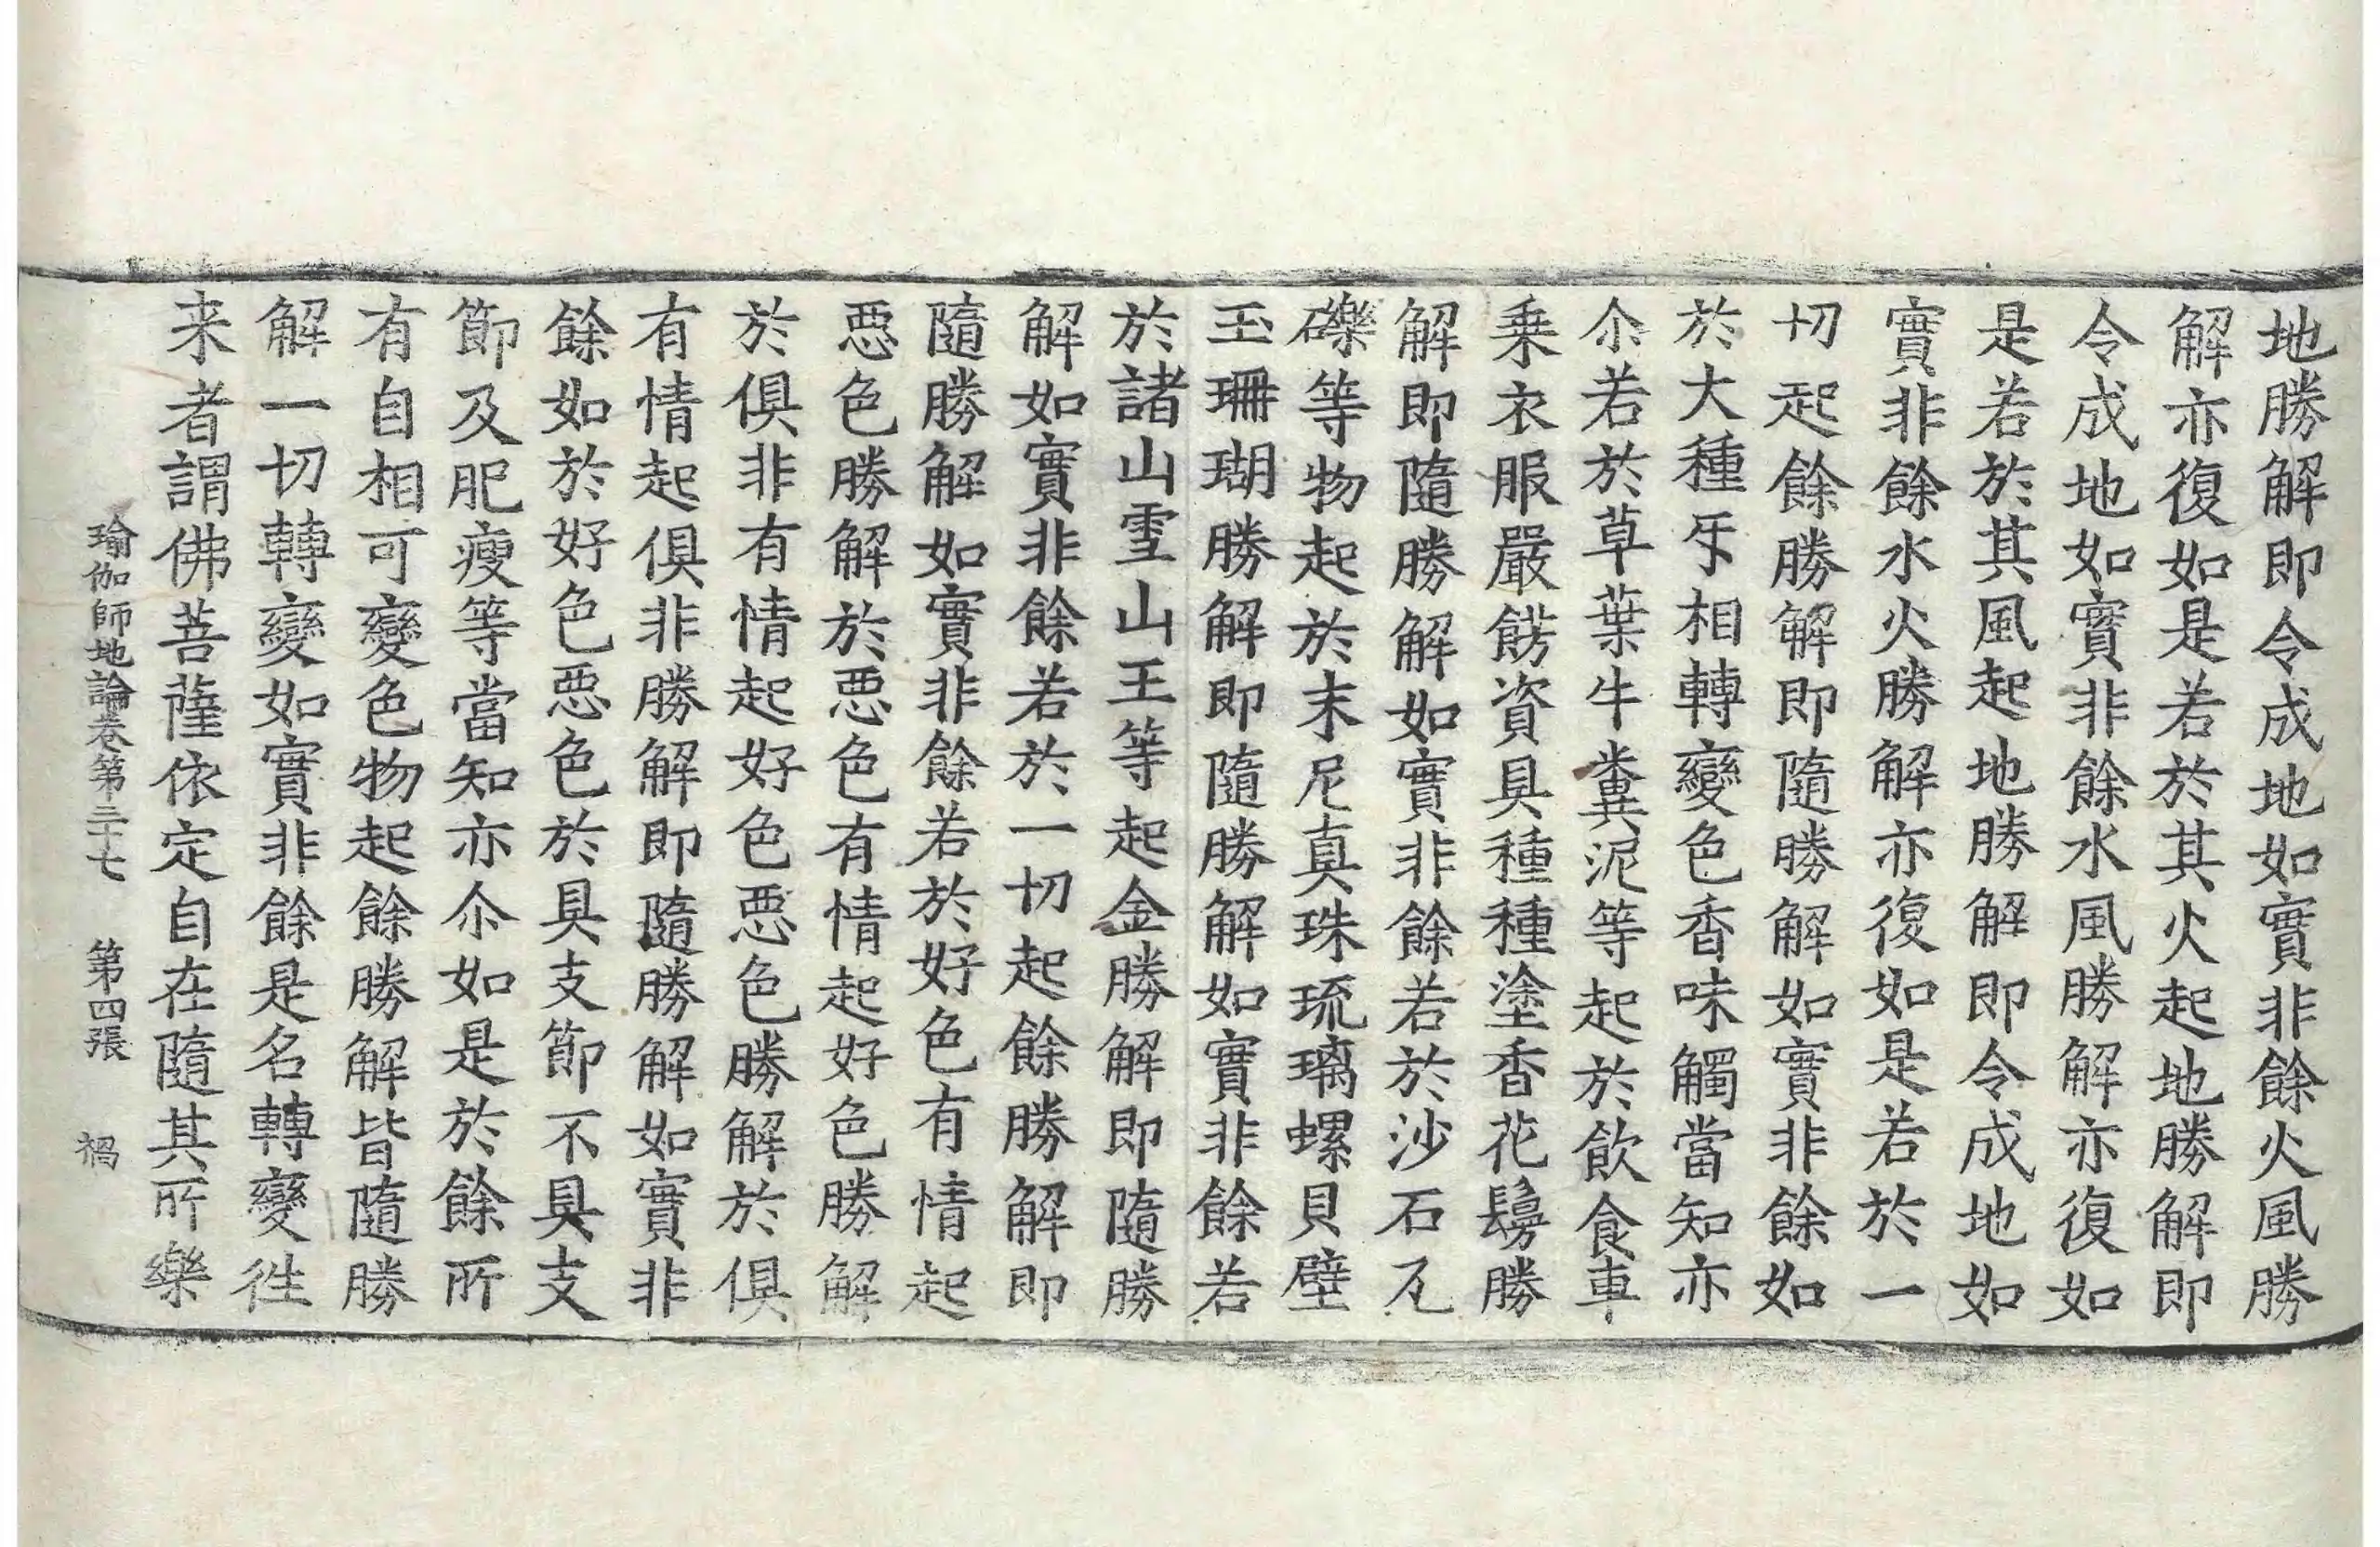 地勝解即令成地如實非餘火風勝
解亦復如是若於其火起地勝解即
令成地如實非餘水風勝解亦復如
是若於其風起地勝解即令成地如
實非餘水火勝解亦復如是若於一
切起餘勝解即隨勝解如實非餘如
於大種㸦相轉變色香味觸當知亦
尒若於草葉牛糞泥等起於飲食車
乗衣服嚴餝資具種種塗香花鬘勝
解即隨勝解如實非餘若於沙石瓦
礫等物起於末尼真珠琉璃螺貝璧
玉珊瑚勝解即隨勝解如實非餘若
於諸山雪山王等起金勝解即隨勝
解如實非餘若於一切起餘勝解即
隨勝解如實非餘若於好色有情起
惡色勝解於惡色有情起好色勝解
於俱非有情起好色惡色勝解於俱
有情起俱非勝解即隨勝解如實非
餘如於好色惡色於具支節不具支
節及肥瘦等當知亦尒如是於餘所
有自相可變色物起餘勝解皆隨勝
解一切轉變如實非餘是名轉變往
来者謂佛菩薩依定自在隨其所樂
瑜伽師地論卷第三十七 第四張 禍